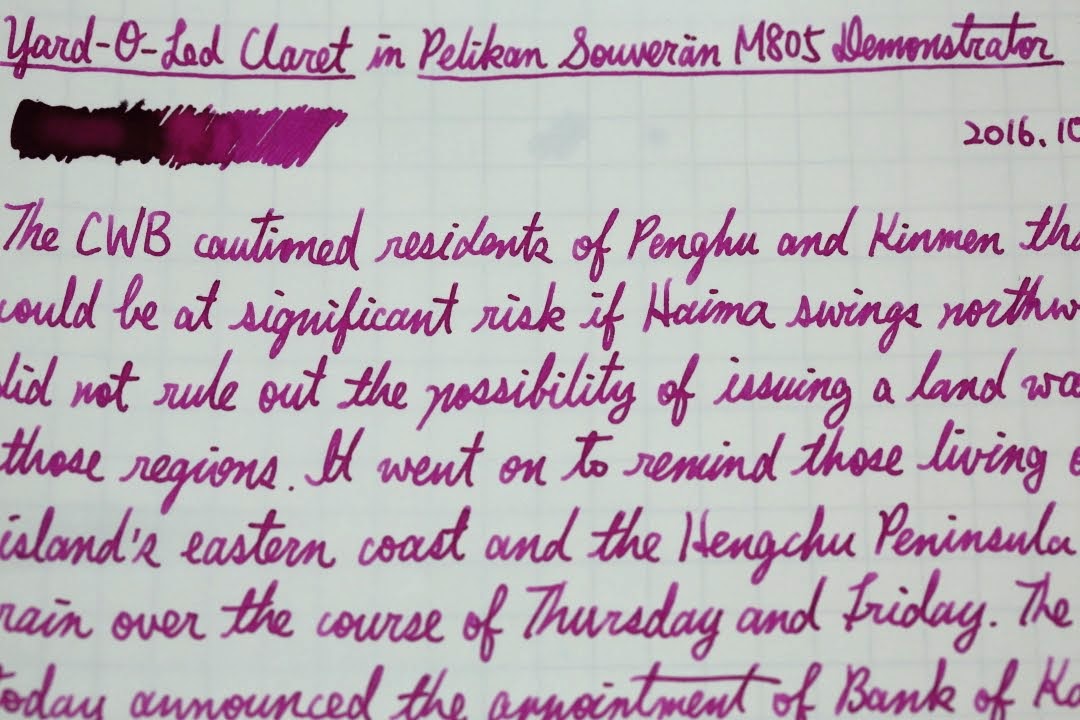 Yard-O-Led Claret in Pelikan Souverän M805 Demonstrator
2016.10
The CWB cautioned residents of Penghu and Kinmen
would be at significant risk if Haima swings
did not rule out the possibility of issuing a land
those regions. It went on to remind those living
island's eastern coast and the Hengchu Peninsula
rain over the course of Thursday and Friday. The
today announced the appointment of Bank of